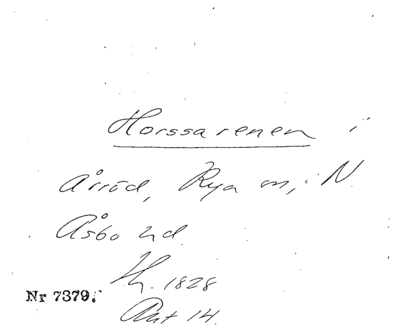 Horssarenen i
Årröd, Rya sn, i N.
Åsbo hd.
Hr. 1828
Nr 7379.
Akt 14.